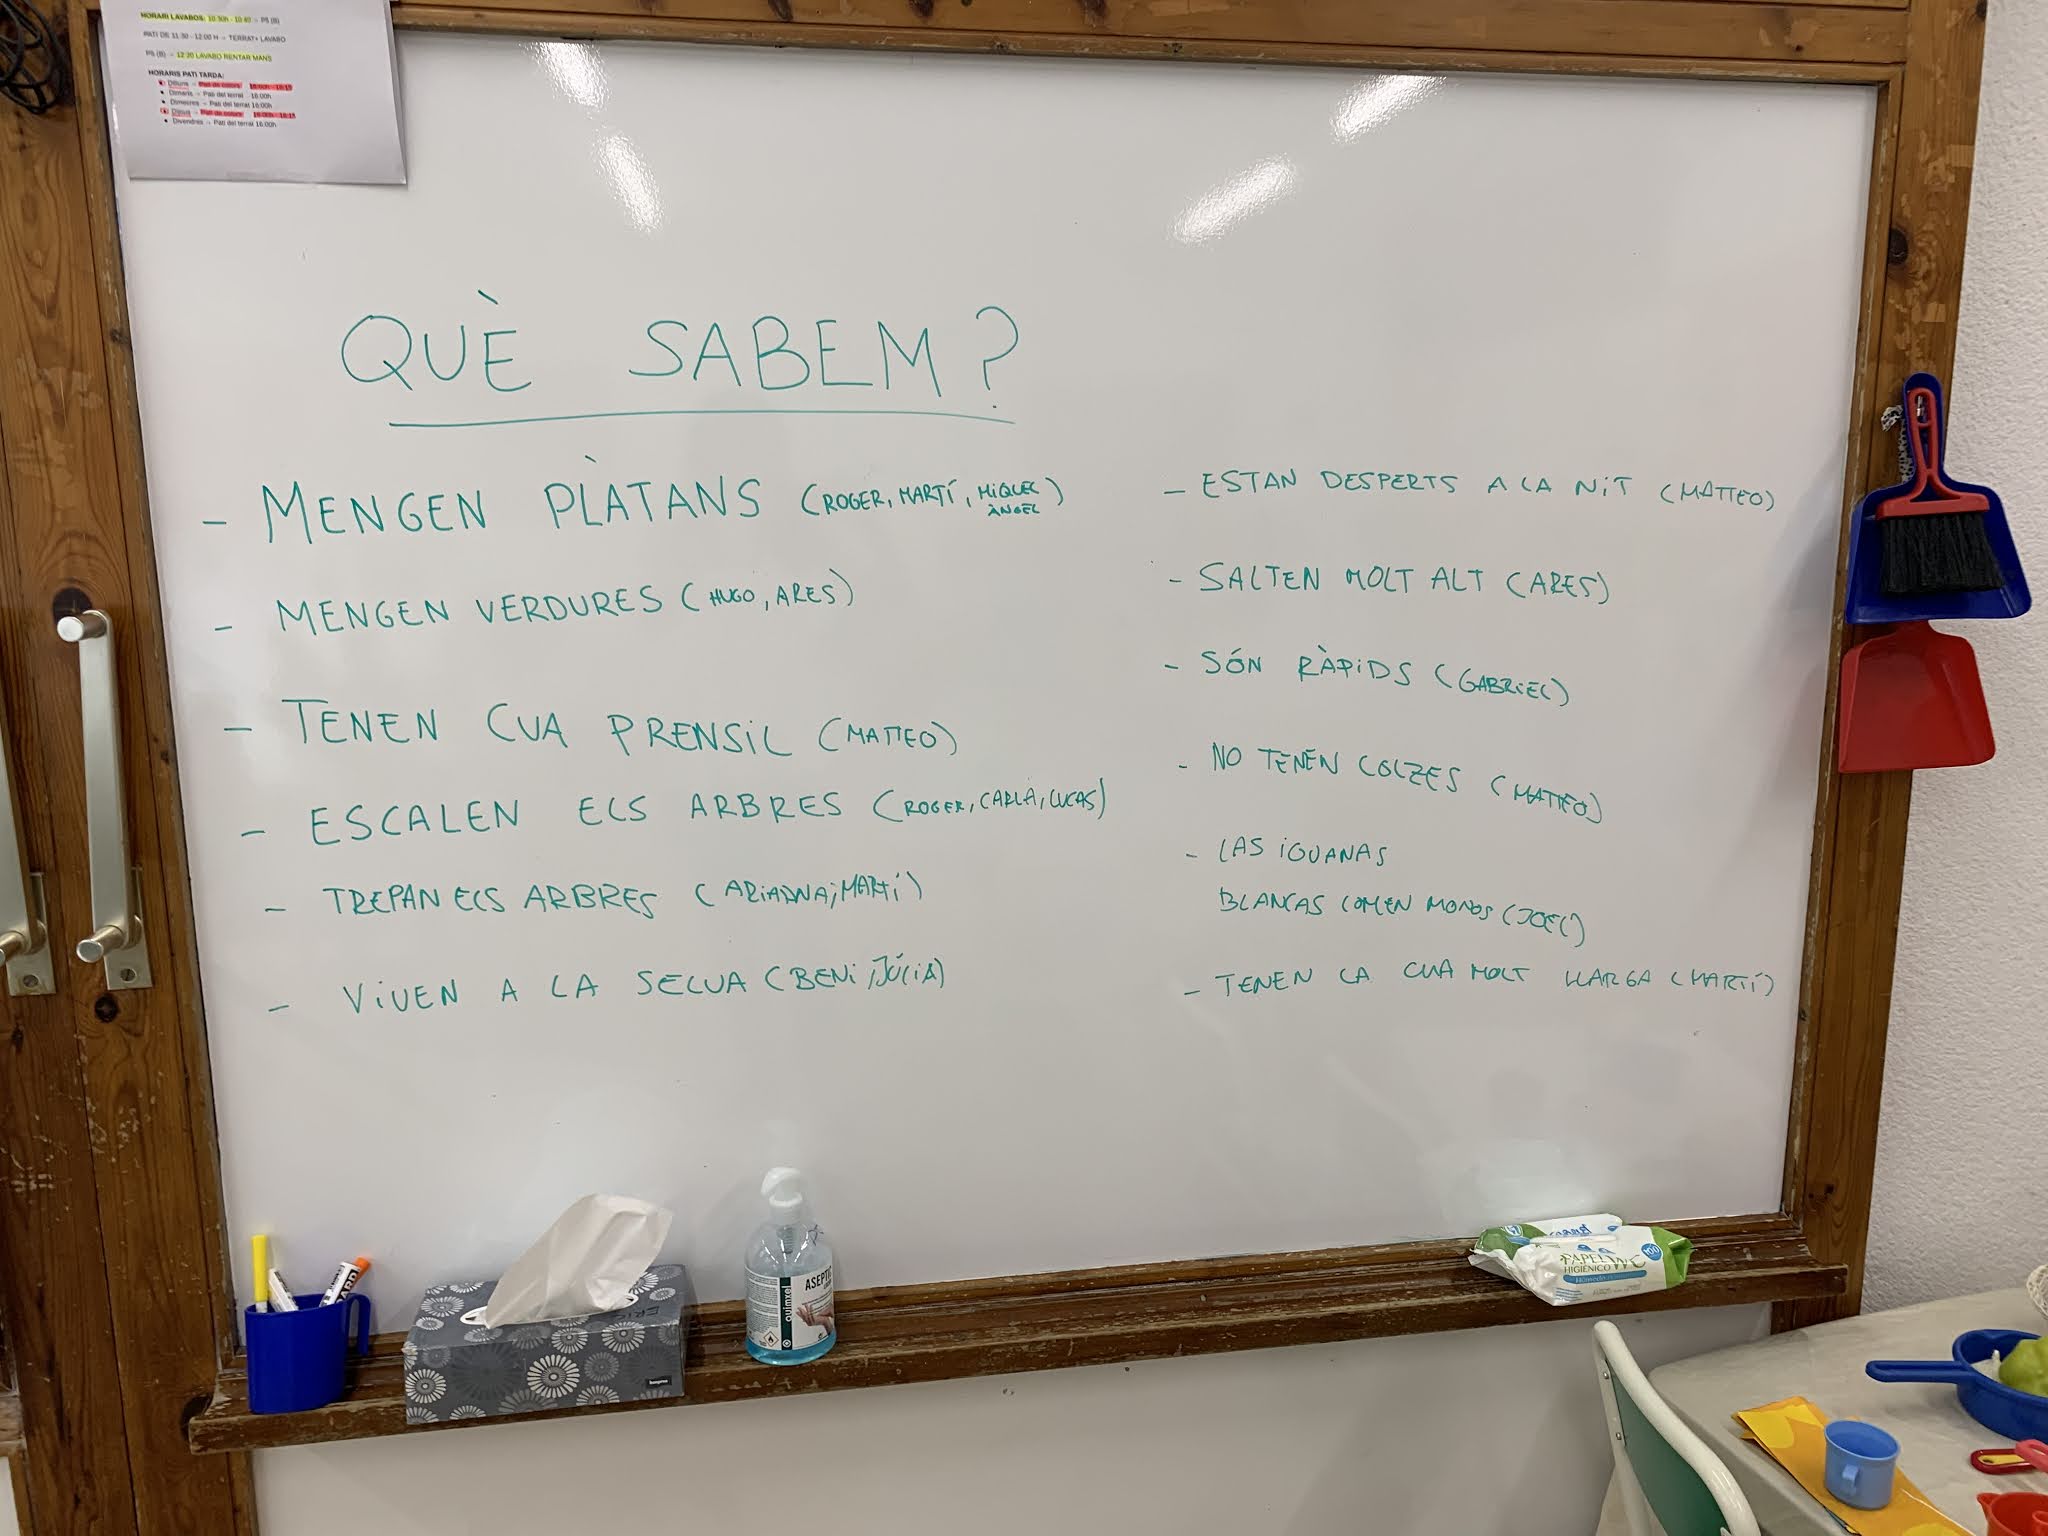 HORARI LAVABOS: 10:30h - 10:40 → P5 (B)
PATI DE 11:30 - 12:00 H → TERRAT+ LAVABO
P5 (B) → 12:30 LAVABO RENTAR MANS
HORARIS PATI TARDA:
Dilluns → Pati de colors 16:00h - 16:15
Dimarts → Pati del terrat 16:00h
Dimecres → Pati del terrat 16:00h
Dijous → Pati de colors 16:00h - 16:15
Divendres → Pati del terrat 16:00h
QUÈ SABEM?
- MENGEN PLÀTANS (ROGER, MARTÍ, MIQUEL ÀNGEL)
- MENGEN VERDURES (HUGO, ARES)
- TENEN CUA PRENSIL (MATTEO)
- ESCALEN ELS ARBRES (ROGER, CARLA, LUCAS)
- TREPAN ELS ARBRES (ARIADNA, MARTÍ)
- VIUEN A LA SELVA (BENI, JÚLIA)
- ESTAN DESPERTS A LA NIT (MATTEO)
- SALTEN MOLT ALT (ARES)
- SÓN RÀPIDS (GABRIEL)
- NO TENEN COLZES (MATTEO)
- LAS IGUANAS
BLANCAS COMEN MONOS (JOEL)
- TENEN LA CUA MOLT LLARGA (MARTÍ)
ASEPTIC
quimxel
PAPEL WC
HIGIÉNICO
Húmedo